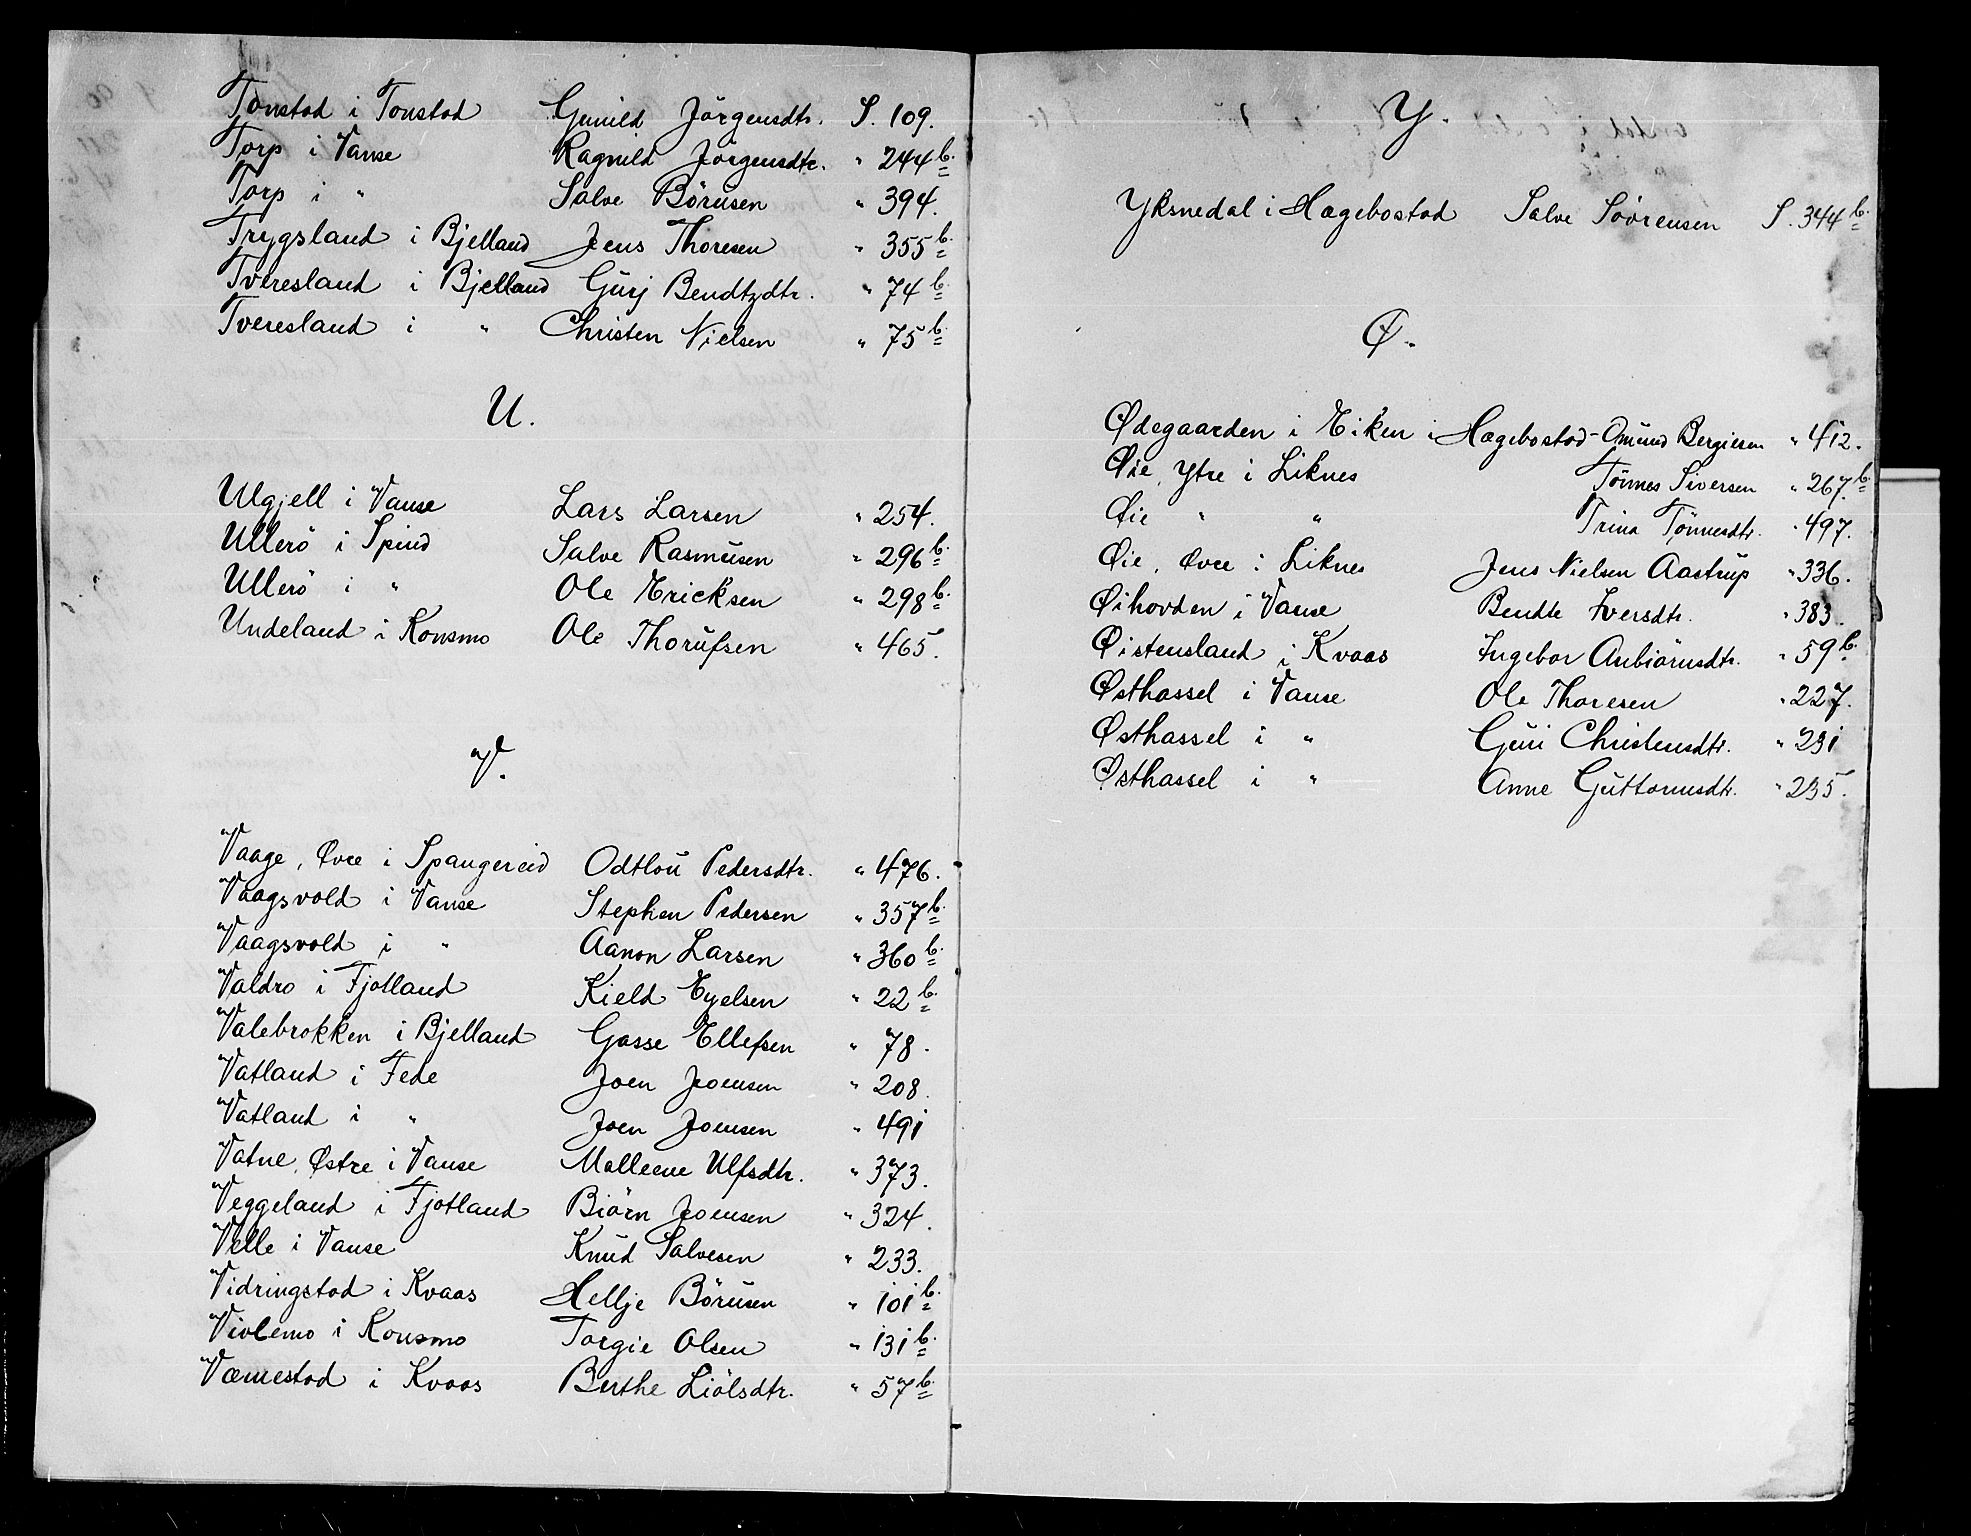 Tonstad i Tonstad Gunild Jörgensdtr. S. 109.
Torp i Vanse Ragnild Jörgensdtr. " 244 b.
Torp i " Salve Börusen " 394.
Trygsland i Bjelland Jens Thoresen " 355 b.
Tveresland i Bjelland Gurj Bendtzdtr. " 74 b.
Tveresland i " Christen Nielsen " 75 b.
U.
Ulgjell i Vanse Lars Larsen " 254.
Ullerö i Spind Salve Rasmusen " 296 b.
Ullerö i " Ole Ericksen " 298 b.
Undeland i Konsmo Ole Thorufsen " 465.
V.
Vaage, Øvre i Spangereid Odtlou Pedersdtr. " 476.
Vaagsvold i Vanse Stephen Pedersen " 357 b.
Vaagsvold i " Aanon Larsen " 360 b.
Valdro i Fjotland Kield Eyelsen " 22 b.
Valebrokken i Bjelland Gasse Ellefsen " 78.
Vatland i Fede Joen Joensen " 208.
Vatland i " Joen Joensen " 491
Vatne, Østre i Vanse Malleene Ulfsdtr. " 373.
Veggeland i Fjotland Biörn Joensen " 324.
Velle i Vanse Knud Salvesen " 233.
Vidringstad i Kvaas Hellje Börusen " 101 b.
Violemo i Konsmo Torgie Olsen " 131 b.
Væmestad i Kvaas Berthe Liölsdtr. " 57 b.
Y.
Yksnedal i Hægebostad Salve Sövrensen S. 344 b.
Ø.
Ødegaarden i Eiken i Hægebostad - Omund Bergiesen " 412.
Øie, Ytre i Liknes Tönnes Siversen " 267 b.
Øie " " Trina Tönnesdtr. " 497.
Øie, Øvre i Liknes Jens Nielsen Aastrup " 336.
Øihovden i Vanse Bendte Iversdtr. " 383.
Øistensland i Kvaas Ingebor Anbiörnsdtr. " 59 b.
Østhassel i Vanse Ole Thoresen " 227.
Østhassel i " Guri Christensdtr. " 231
Østhassel i " Anne Guttormsdtr. " 235.